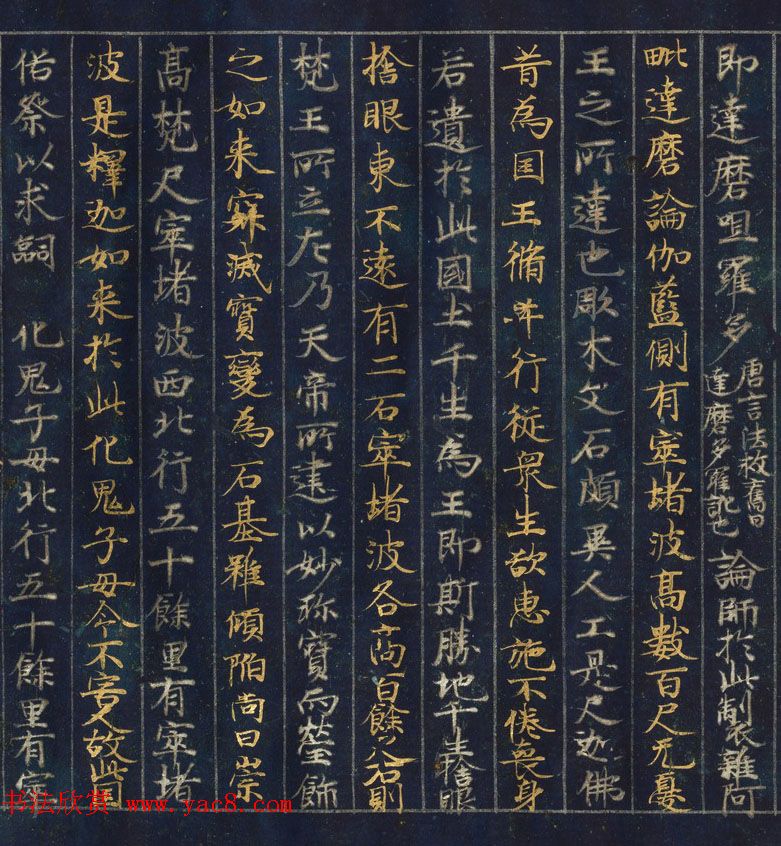 即達磨呾羅多唐言法救舊曰達磨多羅訛也論師於此製雜阿
毗達磨論伽藍側有窣堵波高數百尺无憂
王之所達也彫木文石頗異人工是尺迦佛
昔為国王脩行從衆生欲惠施不倦喪身
若遺於此國土千生為王即斯勝地千生捨眼
捨眼東不遠有二石窣堵波各高百餘尺右則
梵王所立左乃天帝所建以妙珎寶而瑩飾
之如来寂滅寶變為石基雖傾陷尚曰崇
高梵尺窣堵波西北行五十餘里有窣堵
波是釋迦如来於此化鬼子母令不害人故此国
俗祭以求嗣 化鬼子母北行五十餘里有窣
书法欣赏 www.yac8.com